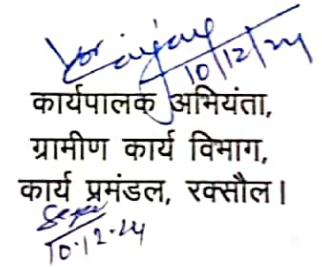 10/12/24
कार्यपालक अभियंता,
ग्रामीण कार्य विभाग,
कार्य प्रमंडल, रक्सौल।
10.12.24